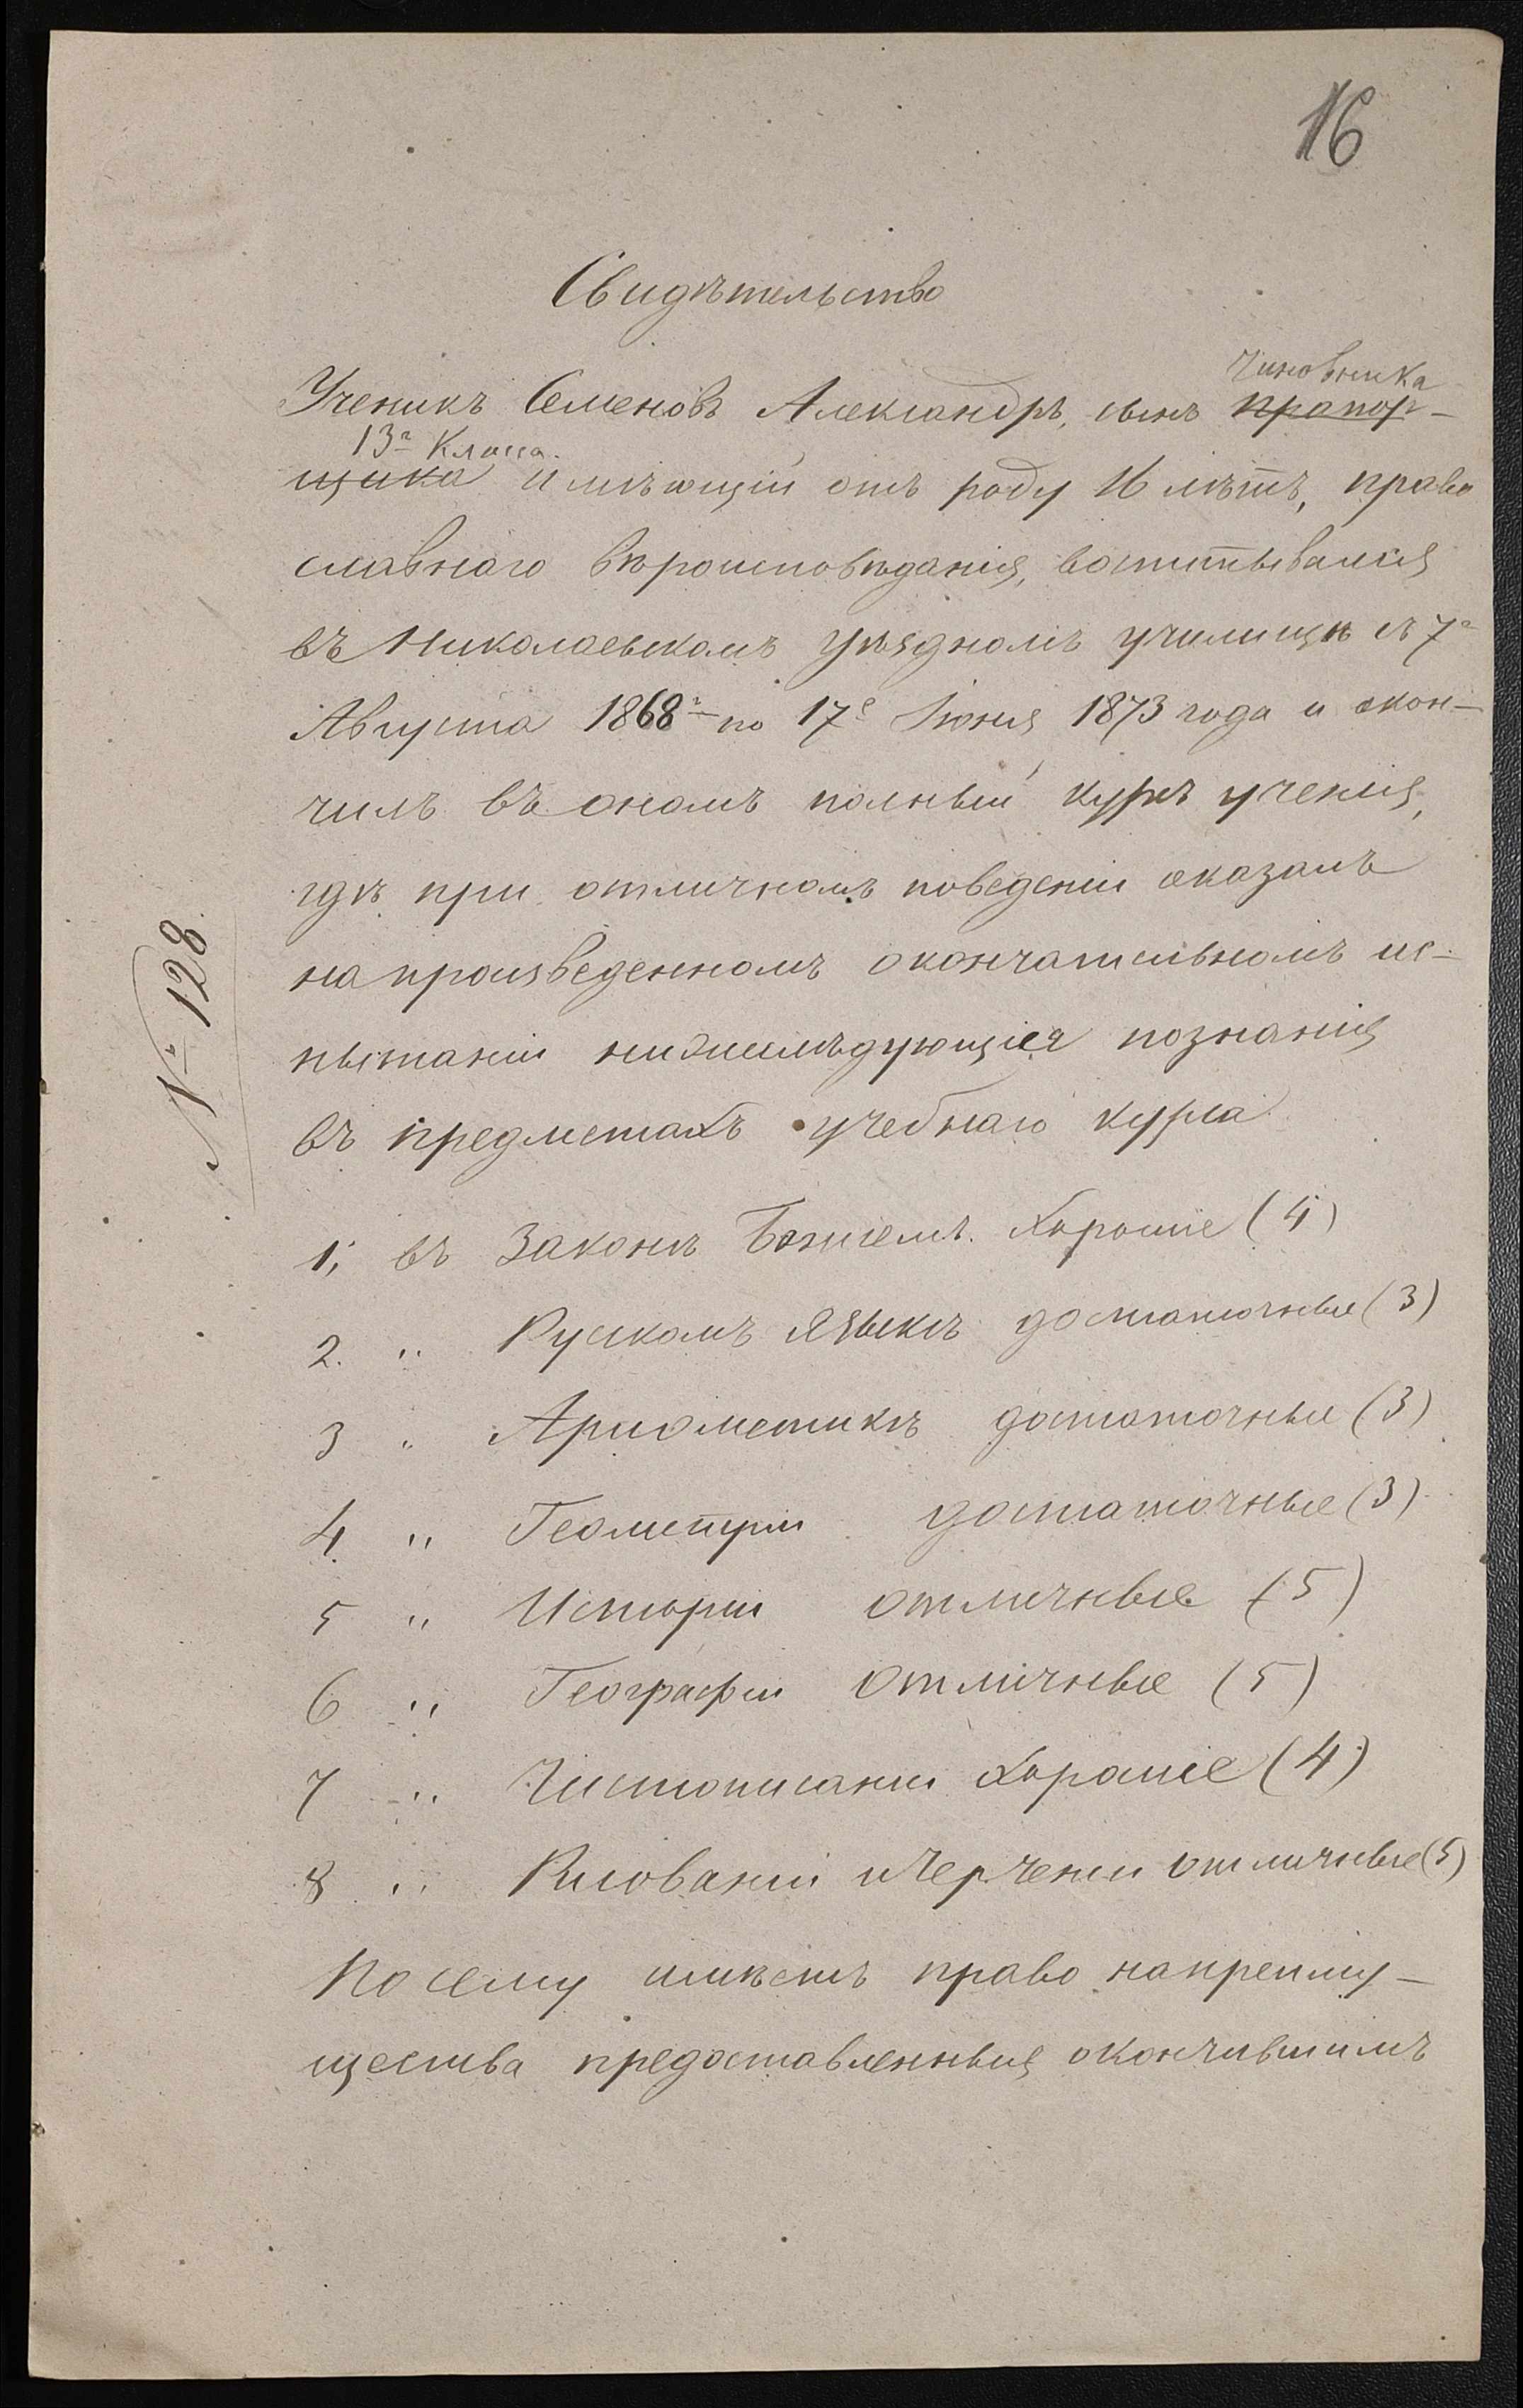 16
Свидѣтельство
чиновника
Ученикъ Семеновъ Александръ, сынъ прапор-
13г класса.
щика имѣющій отъ роду 16 лѣтъ, право
славнаго вѣроисповѣданія, воспитывался
въ Николаевскомъ уѣздномъ училищѣ съ 7г
Августа 1868г по 17е Іюня 1873 года и окон-
чилъ въ ономъ полный курсъ ученія,
гдѣ при отличномъ поведеніи оказалъ
на произведенномъ окончательномъ ис-
пытаніи нижеслѣдующія познанія
въ предметахъ учебнаго курса
№ 128.
1, въ Законѣ Божіемъ. Хорошіе (4)
2. " Русскомъ языкѣ достаточные (3)
3 " Ариѳметикѣ достаточные (3)
4 " Геометріи достаточные (3)
5 " Исторіи отличные (5)
6 " Географіи Отличные (5)
7 " Чистописаніи Хорошіе (4)
8 " Рисованіи и Черченіи отличные (5)
Посему имѣетъ право на преиму-
щества предоставленныя окончившимъ